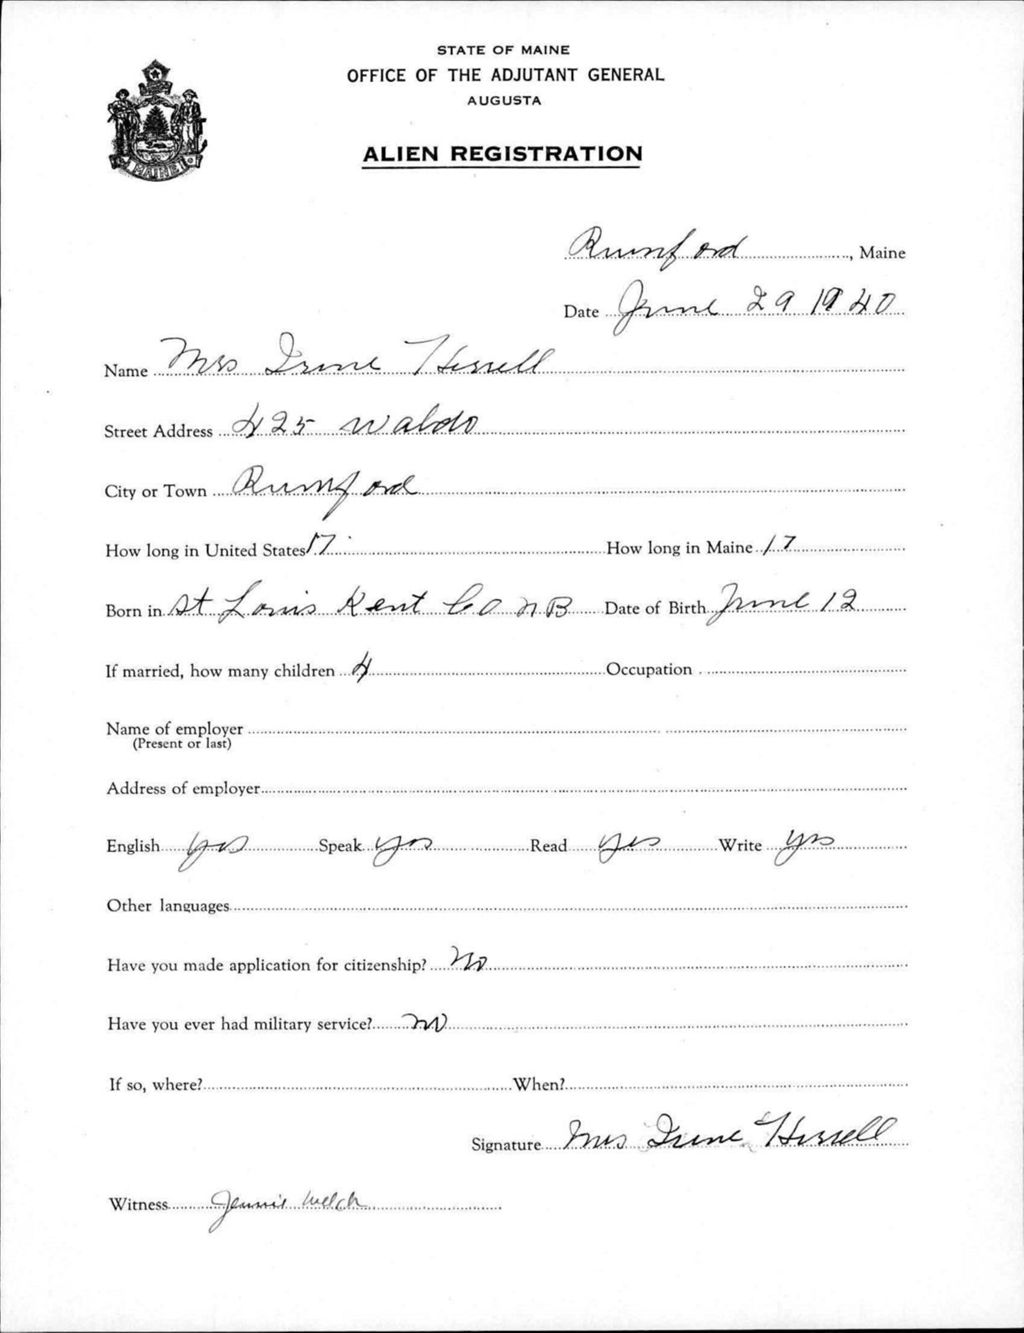 STATE OF MAINE
OFFICE OF THE ADJUTANT GENERAL
AUGUSTA
ALIEN REGISTRATION
MAINE
Rumford, Maine
Date June 29 1940
Name Mrs Irene Hersell
Street Address 425 Waldo
City or Town Rumford
How long in United States 17 How long in Maine 17
Born in St Louis Kent Co NB Date of Birth June 12
If married, how many children 4 Occupation
Name of employer
(Present or last)
Address of employer
English yes Speak yes Read yes Write yes
Other languages
Have you made application for citizenship? No
Have you ever had military service? no
If so, where? When?
Signature Mrs Irene Hersell
Witness Jennie Welch